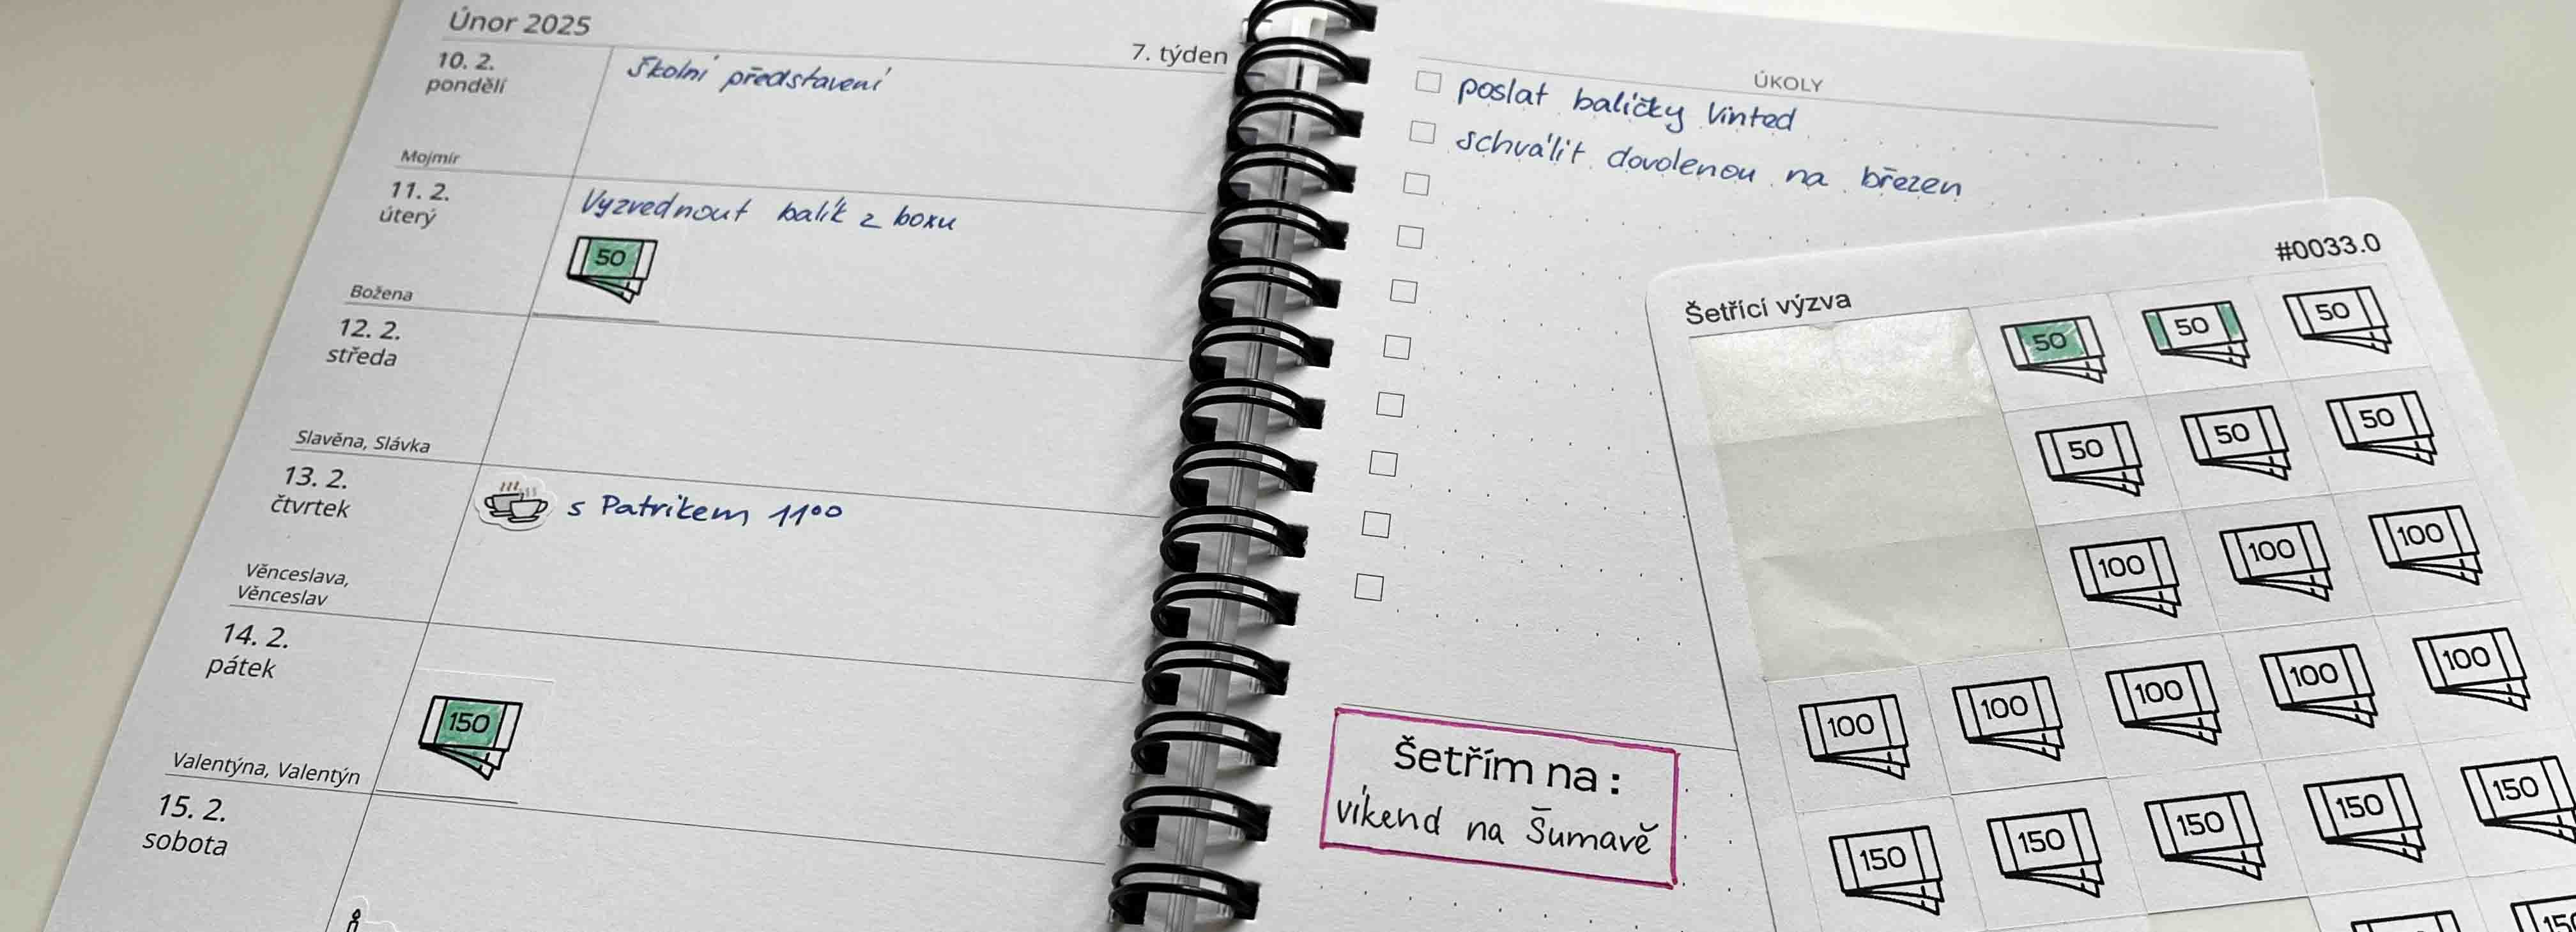 Únor 2025
7. týden
10. 2.
pondělí
Školní představení
Mojmír
11. 2.
úterý
Vyzvednout balík z boxu
50
Božena
12. 2.
středa
Slavěna, Slávka
13. 2.
čtvrtek
s Patrikem 11⁰⁰
Věnceslava,
Věnceslav
14. 2.
pátek
150
Valentýna, Valentýn
15. 2.
sobota
ÚKOLY
poslat balíčky Vinted
schválit dovolenou na březen
Šetřím na :
víkend na Šumavě
#0033.0
Šetřící výzva
50 50 50
50 50 50
100 100 100
100 100 100 100 100
150 150 150 150 150
150